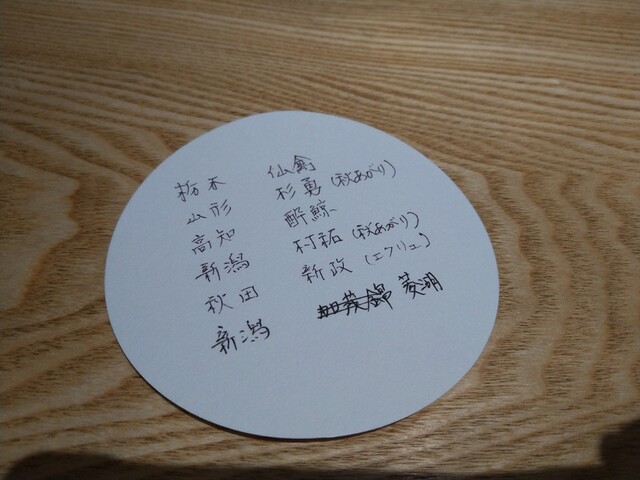 栃木 仙禽
山形 杉勇(秋あがり)
高知 酔鯨
新潟 村祐(秋あがり)
秋田 新政(エクリュ)
新潟 加茂錦 菱湖